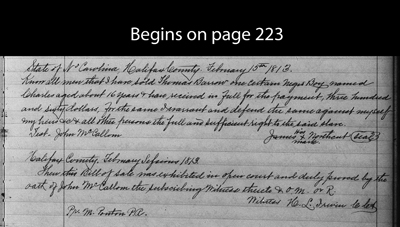 Begins on page 223
State of No Carolina, Halifax County. February 15th 1813.
Know all men that I have sold Thomas Barrow one certain Negro Boy, named
Charles aged about 16 years & have received in full for the payment, three hundred
and sixty dollars. For the same I warrant and defend the same against myself
my heirs & all other persons the full and sufficient right to the said slave.
Test. John McCollom James his x mark Northcut seal
Halifax County, February Sessions 1813
Then this Bill of sale was exhibited in open court and duly proved by the
oath of John McCollom the subscribing Witness thereto & O. M. R.
Witness L. Irwin
Pr. M. Ponton P.R.